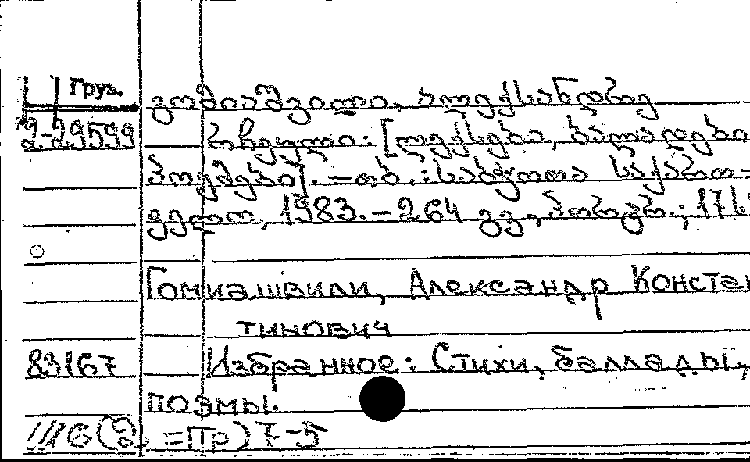 Груз.
გომიაშვილი, ალექსანდრე
2-29599 რჩეული: [ლექსები, ბალადები
პოემები]. – თბ.: საბჭოთა საქართ-
ველო, 1983. – 264 გვ., პორტრ.; 17
Гомиашвили, Александр Конста
тинович
83167 Избранное: Стихи, баллады,
поэмы.
7-5